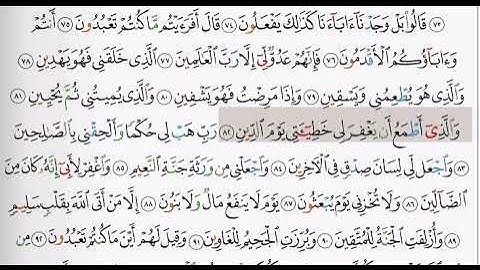 ٧٣ قَالُوا۟ بَلْ وَجَدْنَآ ءَابَآءَنَا كَذَٰلِكَ يَفْعَلُونَ ٧٤ قَالَ أَفَرَءَيْتُم مَّا كُنتُمْ تَعْبُدُونَ ٧٥ أَنتُمْ
وَءَابَآؤُكُمُ ٱلْأَقْدَمُونَ ٧٦ فَإِنَّهُمْ عَدُوٌّ لِّىٓ إِلَّا رَبَّ ٱلْعَٰلَمِينَ ٧٧ ٱلَّذِى خَلَقَنِى فَهُوَ يَهْدِينِ ٧٨
وَٱلَّذِى هُوَ يُطْعِمُنِى وَيَسْقِينِ ٧٩ وَإِذَا مَرِضْتُ فَهُوَ يَشْفِينِ ٨٠ وَٱلَّذِى يُمِيتُنِى ثُمَّ يُحْيِينِ ٨١
وَٱلَّذِىٓ أَطْمَعُ أَن يَغْفِرَ لِى خَطِيٓـَٔتِى يَوْمَ ٱلدِّينِ ٨٢ رَبِّ هَبْ لِى حُكْمًا وَأَلْحِقْنِى بِٱلصَّٰلِحِينَ
٨٣ وَٱجْعَل لِّى لِسَانَ صِدْقٍ فِى ٱلْءَاخِرِينَ ٨٤ وَٱجْعَلْنِى مِن وَرَثَةِ جَنَّةِ ٱلنَّعِيمِ ٨٥ وَٱغْفِرْ لِأَبِىٓ إِنَّهُۥ كَانَ مِنَ
ٱلضَّآلِّينَ ٨٦ وَلَا تُخْزِنِى يَوْمَ يُبْعَثُونَ ٨٧ يَوْمَ لَا يَنفَعُ مَالٌ وَلَا بَنُونَ ٨٨ إِلَّا مَنْ أَتَى ٱللَّهَ بِقَلْبٍ سَلِيمٍ
٨٩ وَأُزْلِفَتِ ٱلْجَنَّةُ لِلْمُتَّقِينَ ٩٠ وَبُرِّزَتِ ٱلْجَحِيمُ لِلْغَاوِينَ ٩١ وَقِيلَ لَهُمْ أَيْنَ مَا كُنتُمْ تَعْبُدُونَ ٩٢